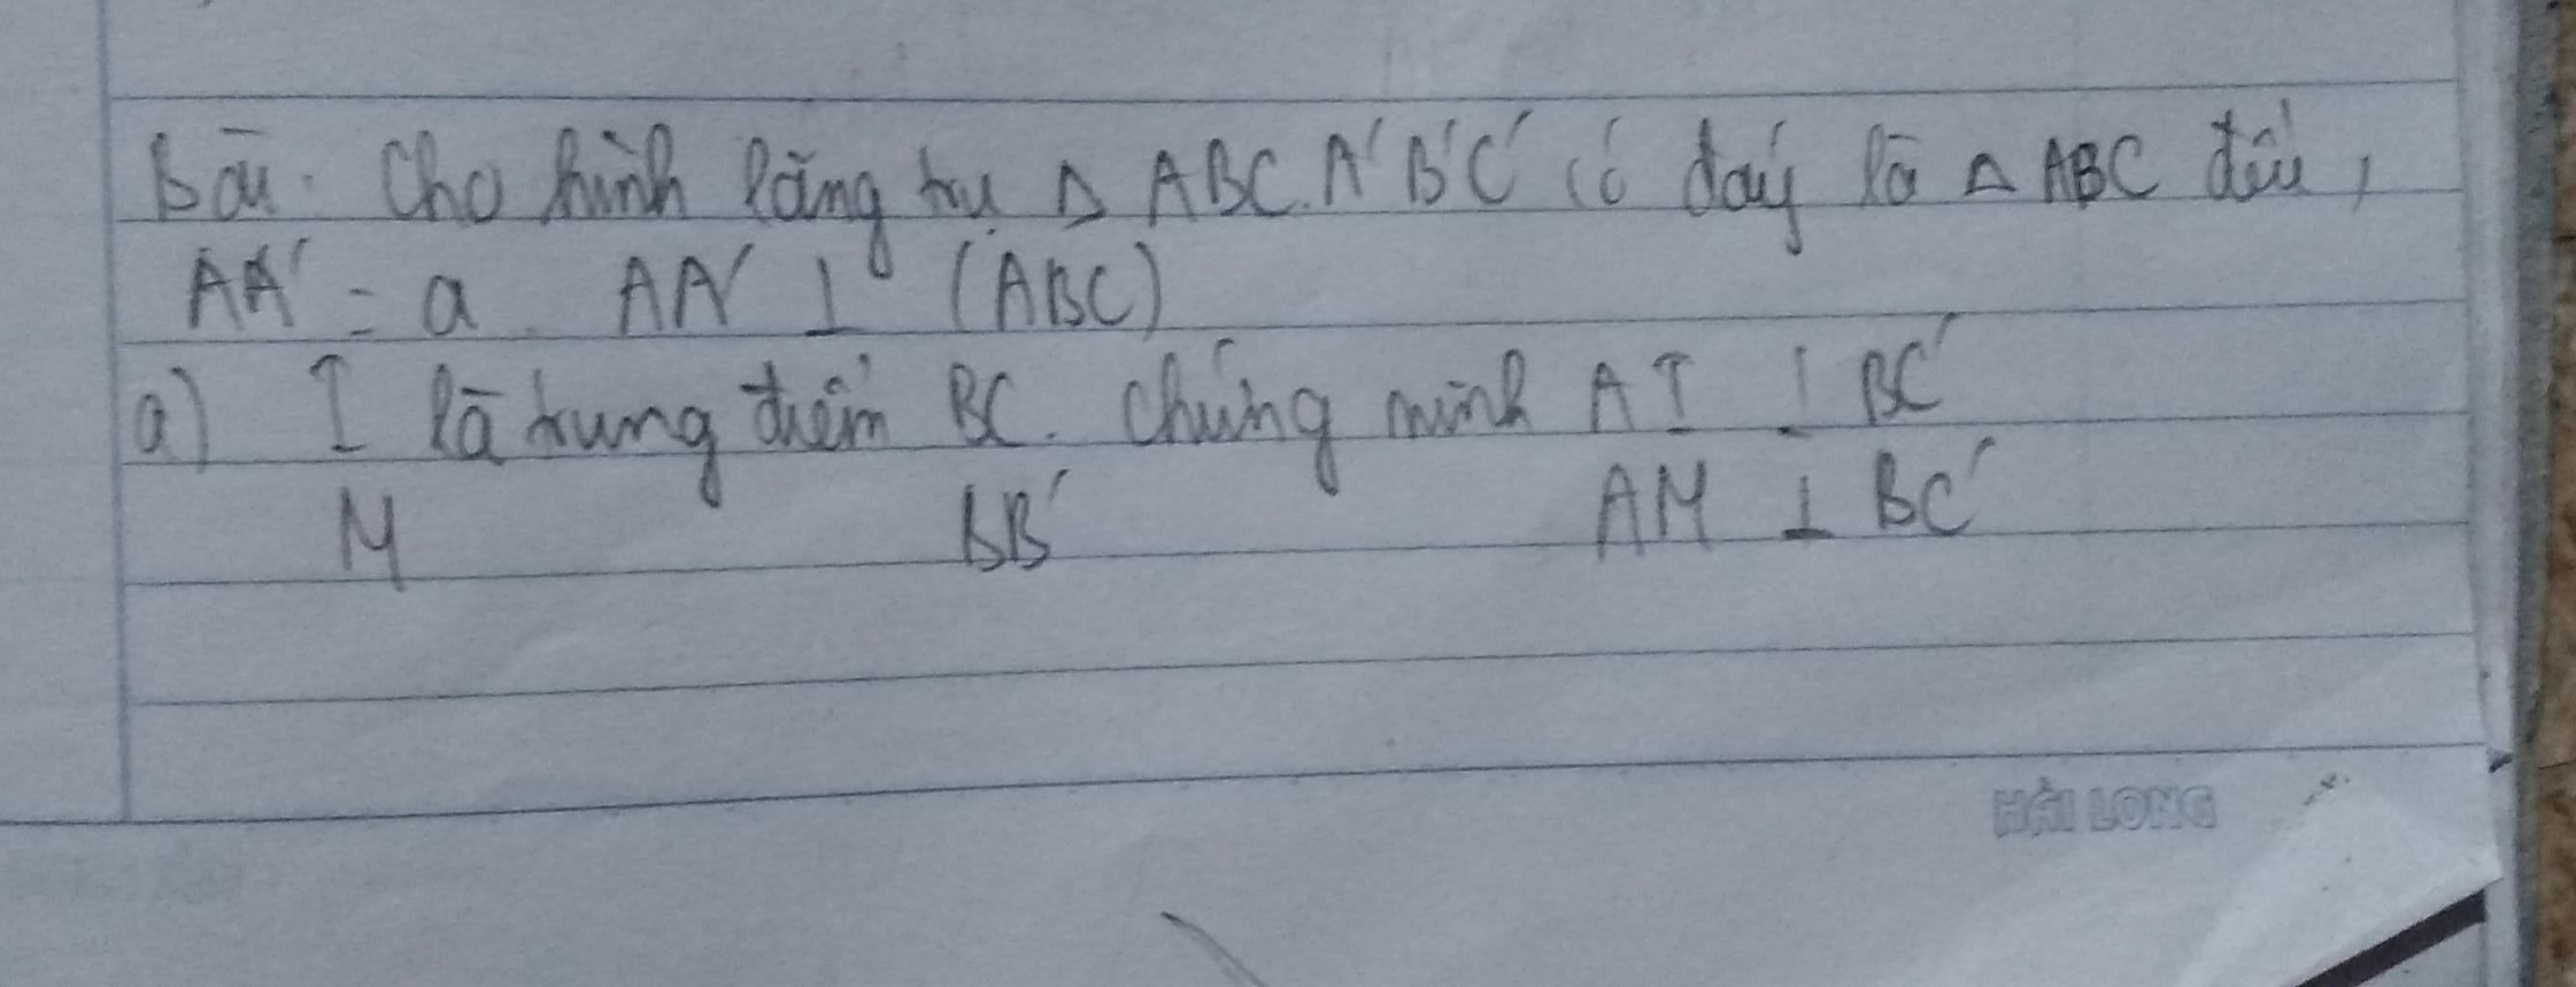 Bài. Cho hình lăng trụ Δ ABC.A'B'C' có đáy là Δ ABC đều,
AA' = a AA' ⊥ (ABC)
a) I là trung điểm BC. Chứng minh AI ⊥ BC'
M BB' AM ⊥ BC'
HẢI LONG